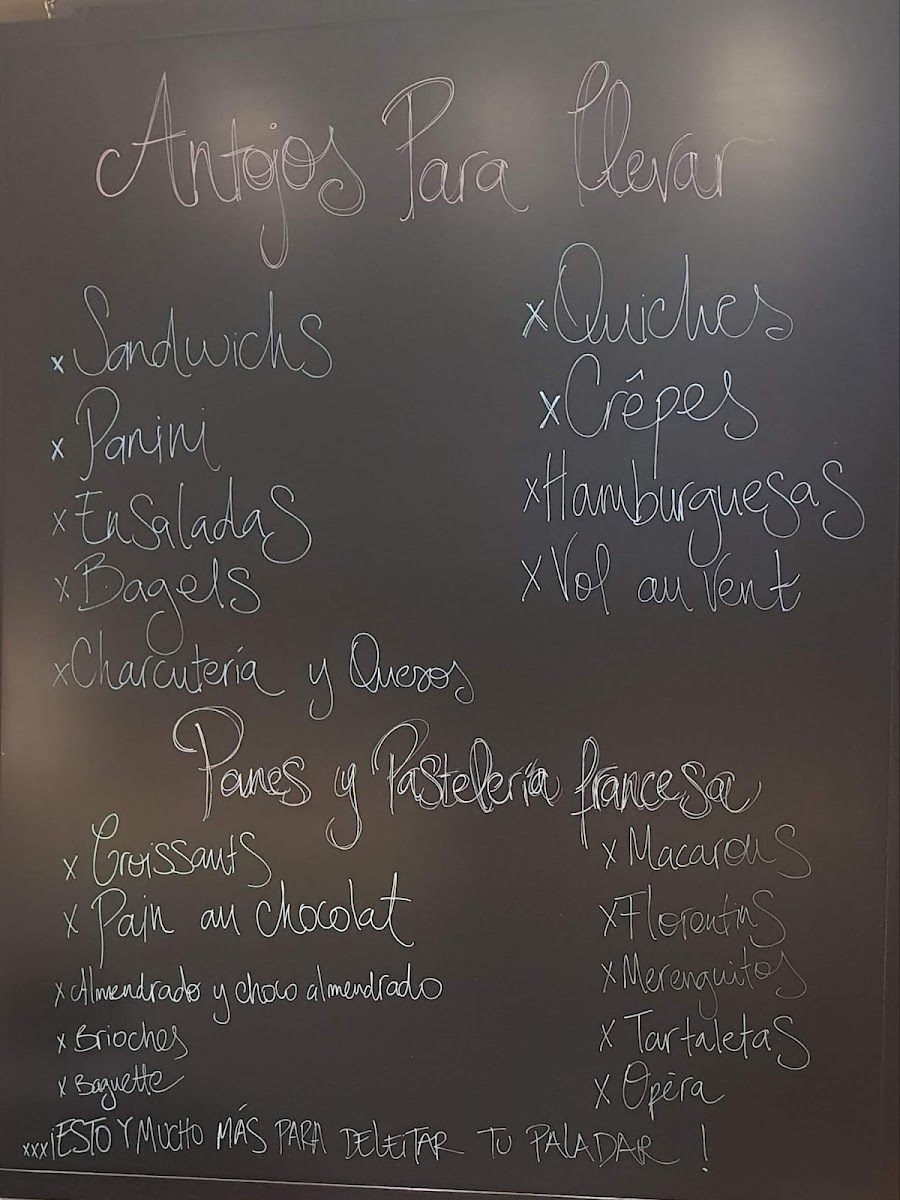 Antojos Para llevar
x Sandwichs
x Panini
x Ensaladas
x Bagels
x Charcutería y Quesos
x Quiches
x Crêpes
x Hamburguesas
x Vol au vent
Panes y Pastelería francesa
x Croissants
x Pain au chocolat
x Almendrado y choco almendrado
x Brioches
x Baguette
x Macarons
x Florentins
x Merenguitos
x Tartaletas
x Opèra
xxx¡ESTO Y MUCHO MÁS PARA DELEITAR TU PALADAR!